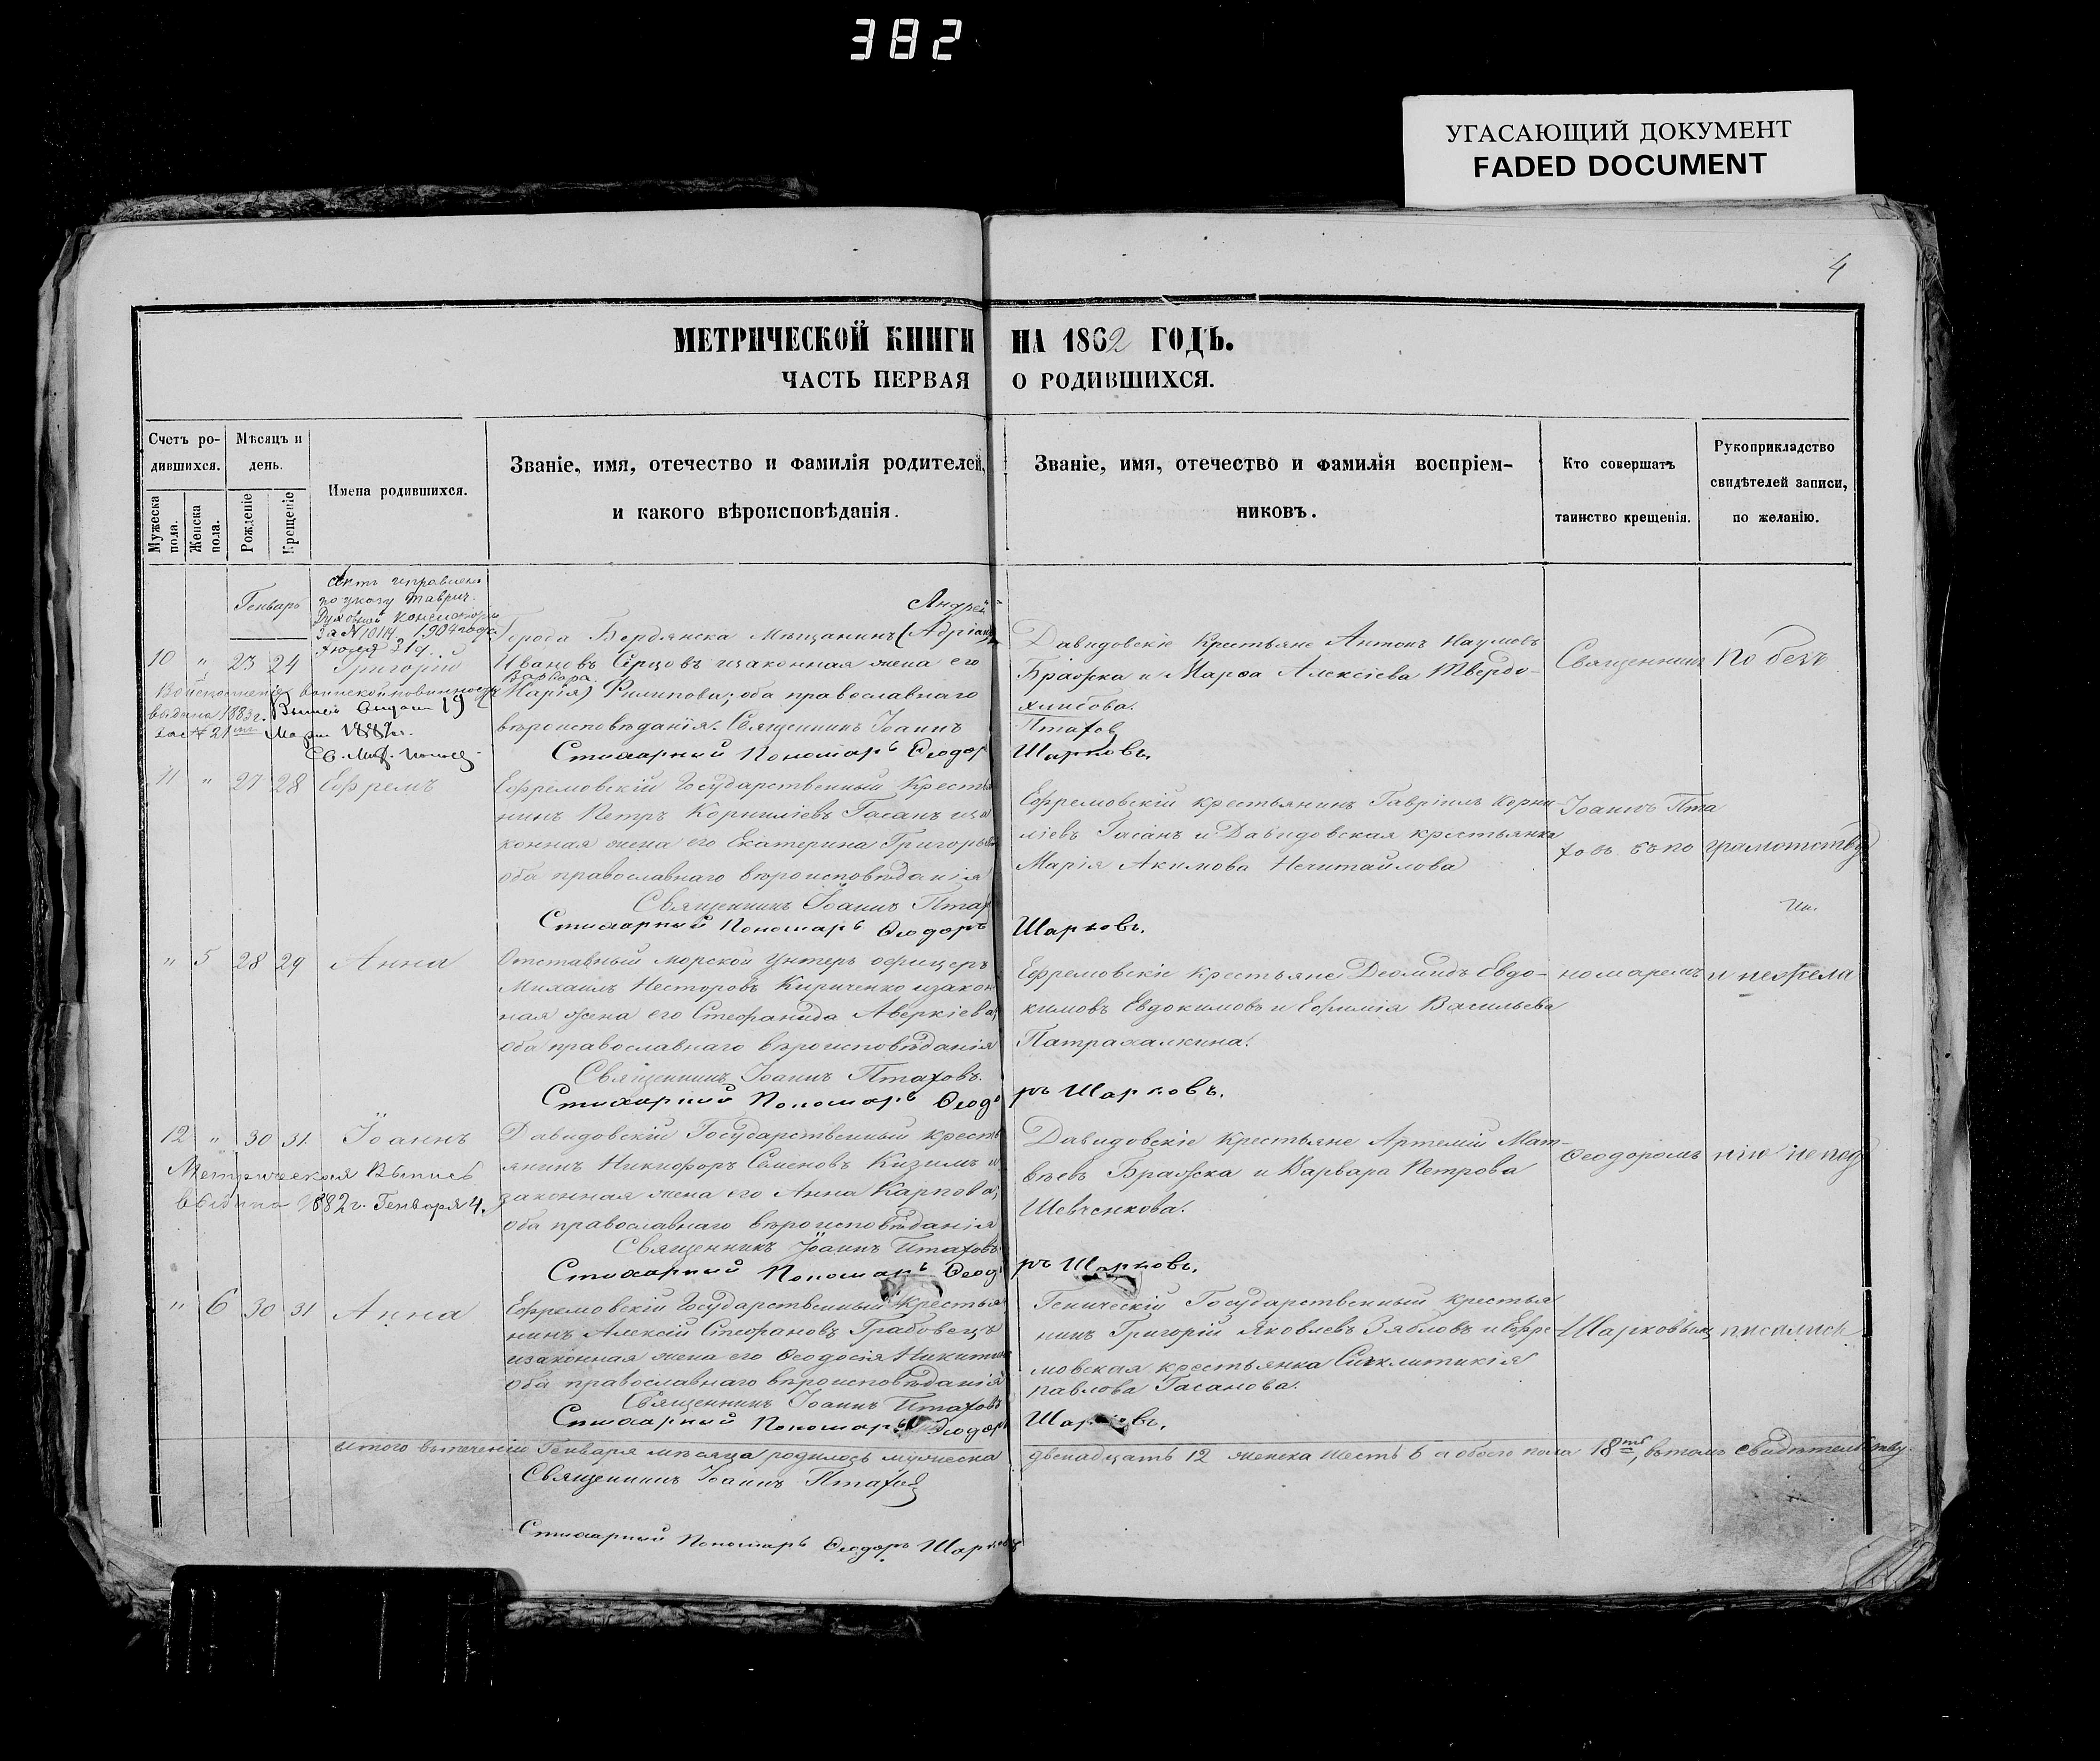 382
УГАСАЮЩИЙ ДОКУМЕНТ
FADED DOCUMENT
4
МЕТРИЧЕСКОЙ КНИГИ НА 1862 ГОДЪ.
ЧАСТЬ ПЕРВАЯ О РОДИВШИХСЯ.
Счетъ ро-
дившихся.
Мужеска пола.
Женска пола.
Мѣсяцъ и
день.
Рожденіе
Крещеніе
Имена родившихся.
Званіе, имя, отечество и фамилія родителей,
и какого вѣроисповѣданія.
Званіе, имя, отечество и фамилія воспріем-
никовъ.
Кто совершатъ
таинство крещенія.
Рукоприкладство
свидѣтелей записи,
по желанію.
Генварь
Актъ исправленъ
по указу Таврич.
Духовной Консисторіи
за № 10114 1904 года
Іюля 21 д.
10 " 23 24 Григорій
выдана 1883 г.
Андрей
Города Бердянска Мѣщанинъ (Адріанъ)
Ивановъ Серцовъ изаконная жена его
Варвара
(Марія) Филипова; оба православнаго
вѣроисповѣданія. Священникъ Іоаннъ Птаховъ
Стихарный Пономарь Ѳеодоръ Шарковъ.
Давидовскіе Крестьяне Антонъ Наумовъ
Бражка и Марѳа Алексіева Твердо-
хлибова.
Священникъ
По безъ
11 " 27 28 Ефремъ
Ефремовскій Государственный Крестья
нинъ Петръ Корниліевъ Гасанъ иза
конная жена его Екатерина Григорьева
оба православнаго вѣроисповѣданія
Священникъ Іоаннъ Птах
Стихарный Пономарь Ѳеодоръ Шарковъ.
Ефремовскій крестьянинъ Гавріилъ Корни
ліевъ Гасанъ и Давидовская крестьянка
Марія Акимова Нечитайлова
Іоаннъ Пта
ховъ съ по
грамотству
" 5 28 29 Анна
Отставный морской унтеръ офицеръ
Михаилъ Несторовъ Кириченко изакон
ная жена его Стефанида Аверкіева;
оба православнаго вѣроисповѣданія
Священникъ Іоаннъ Птаховъ.
Стихарный Пономарь Ѳеодоръ Шарковъ.
Ефремовскіе крестьяне Деомидъ Евдо-
кимовъ Евдокимовъ и Ефимія Васильева
Патрахалкина.
номаремъ
и нежела
12 " 30 31 Іоаннъ
Метрическая Выпись
выдана 1882 г. Генваря 4.
Давидовскій Государственный крестья
янинъ Никифоръ Семеновъ Кизимъ и
законная жена его Анна Карпова;
оба православнаго вѣроисповѣданія
Священникъ Іоаннъ Птаховъ
Стихарный Пономарь Ѳеодоръ Шарковъ.
Давидовскіе Крестьяне Артемій Мат-
вѣевъ Бражка и Варвара Петрова
Шевченкова.
Ѳеодоромъ
нію непод
" 6 30 31 Анна
Ефремовскій Государственный Крестья
нинъ Алексій Стефановъ Грабовецъ
изаконная жена его Ѳеодосія Никитина
оба православнаго вѣроисповѣданія
Священникъ Іоаннъ Птаховъ
Стихарный Пономарь Ѳеодоръ Шарковъ.
Геническій Государственный крестья
нинъ Григорій Яковлевъ Зябловъ и Ефре
мовская крестьянка Сигклитикія
Павлова Гасанова.
Шарковымъ
писались
Итого втеченіи Генваря мѣсяца родилось мужеска двенадцать 12 женска шесть 6 а обоего пола 18ть, въ томъ свидѣтельству
Священникъ Іоаннъ Птаховъ
Стихарный Пономарь Ѳеодоръ Шарковъ